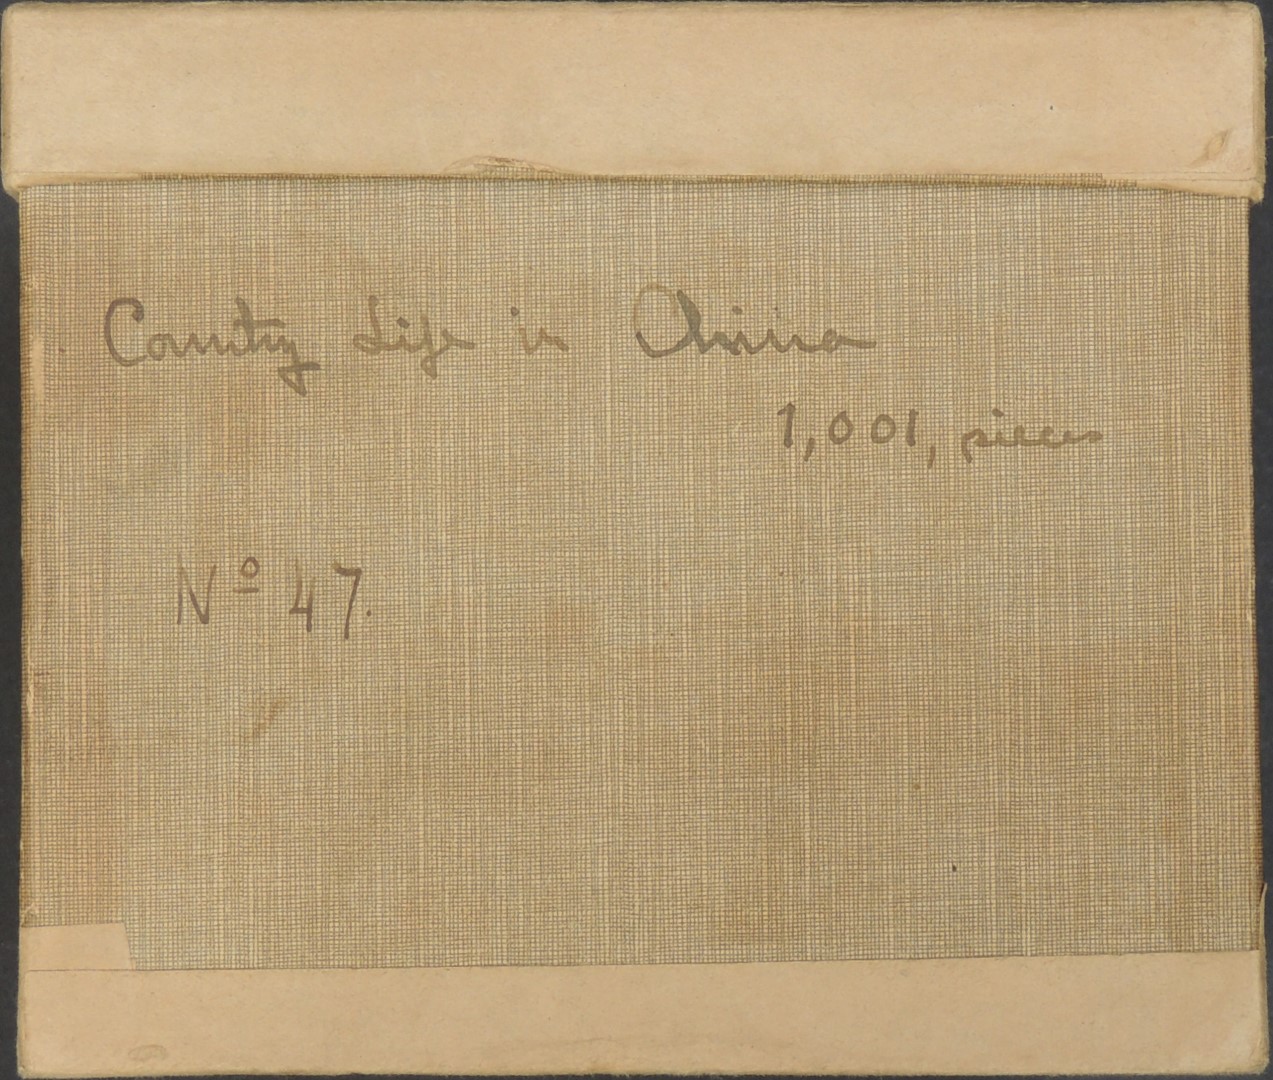 Country Life in China
1,001, pieces
Nº 47.